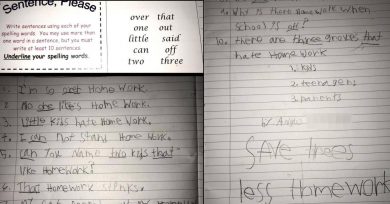 Sentence, Please
Write sentences using each of your
spelling words. You may use more than
one word in a sentence, but you must
write at least 10 sentences.
Underline your spelling words.
over that
one out
little said
can off
two three
1. I'm so over Home Work.
2. No one likes Home Work.
3. Little kids hate Home Work.
4. I can Not stand Home Work.
5. can You Name two kids that
like Homework?
6. That Homework stinks.
9. Why is there Home Work when
School is off?
10. there are three groups that
hate Home Work
1. kids
2. teenagers
3. parents
by
SAVE trees
less Homework